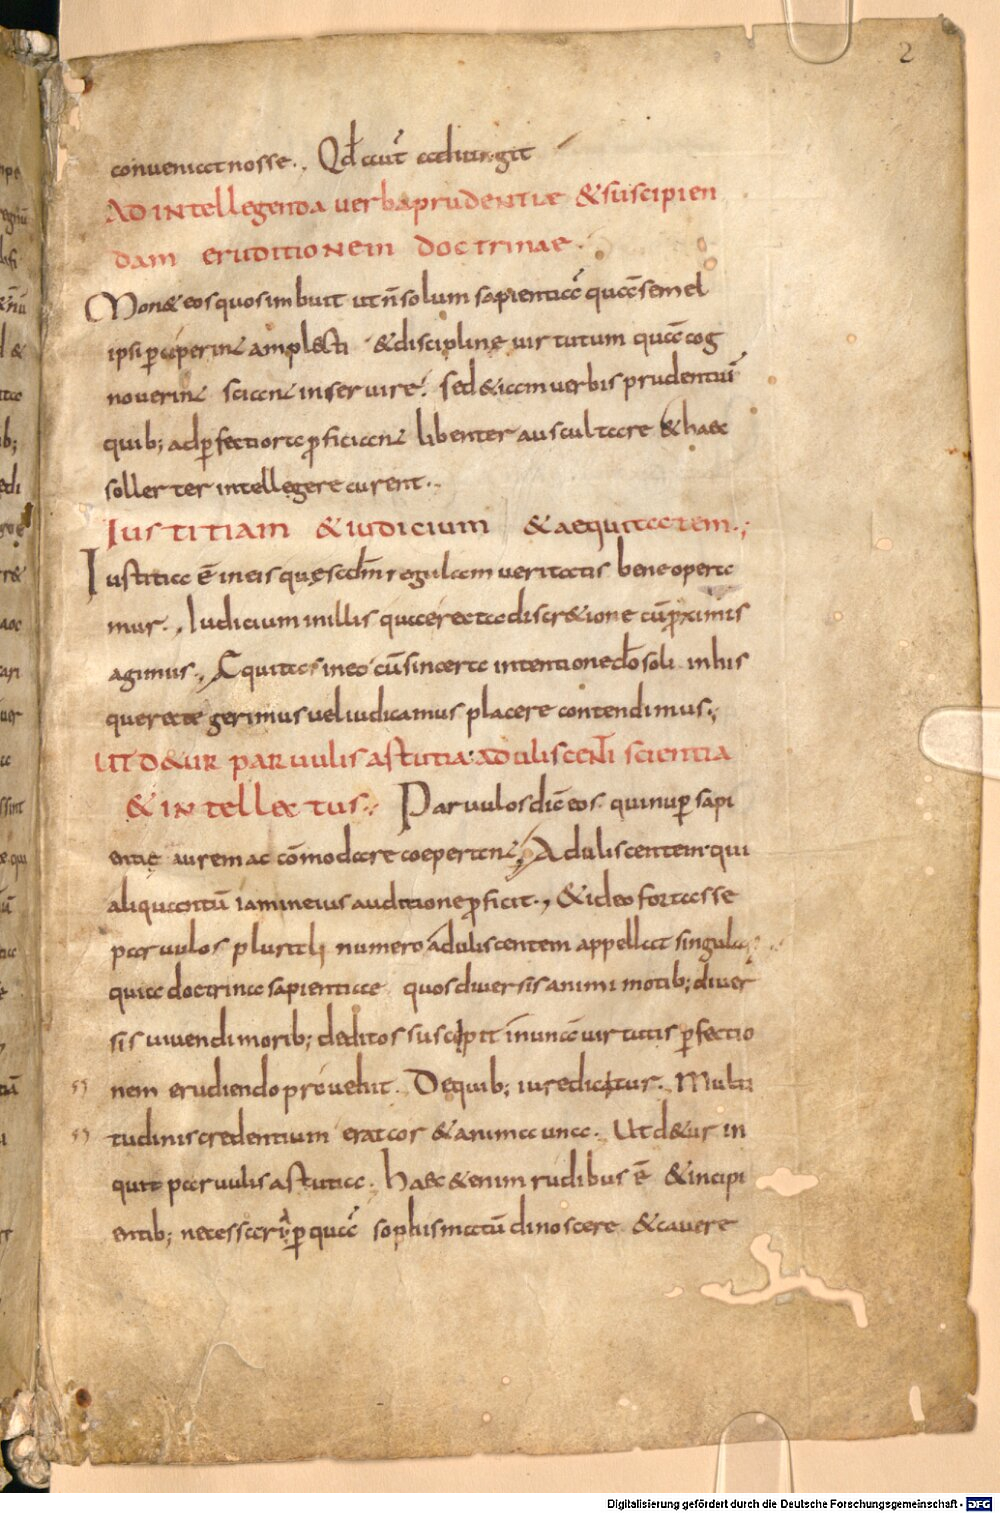 2
conueniat nosse. Qđ aut̄ adiungit
Ad intellegenda uerba prudentiae & suscipien
dam eruditionem doctrinae.
Mon& eos quos imbuit ut n̄ solum sapientiā quā semel
ipsi p̱ceperint amplecti & discipline uirtutum quā cog
nouerint sciant inseruire. sed & iam uerbis prudentiū
quib; ad p̱fectiora proficiant libenter auscultare & haec
sollerter intellegere curent.
Iustitiam & iudicium & aequitatem.;
Iustitia ē in eis quę scdm̄ regulam ueritatis bene opera
mur., Iudicium in illis quae recta discr&ione cū proximis
agimus., Aequitas in eo cū sincera intentione dō soli in his
que recte gerimus uel iudicamus placere contendimus.,
Ut d&ur paruulis astutia: aduliscenti scientia
& intellectus.; Paruulos dic̄ eos. qui nup̱ sapi
entię aurem accōmodare coeperant; Aduliscentem qui
aliquantū iam in eius auditione proficit., & ideo fortasse
paruulos plurali numero aduliscentem appellat singulari;
quia doctrina sapientiae quos diuersis animi motib; diuer
sis uiuendi morib; deditos suscipit in unā uirtutis p̱fectio
nem erudiendo prouehit. De quib; iure dicitur. Multi
tudinis credentium erat cor & anima una. Ut d&ur in
quit paruulis astutia. haec &enim rudibus ē & incipi
entib; necessaria p̱ quā sophismatū dinoscere & cauere
Digitalisierung gefördert durch die Deutsche Forschungsgemeinschaft - DFG